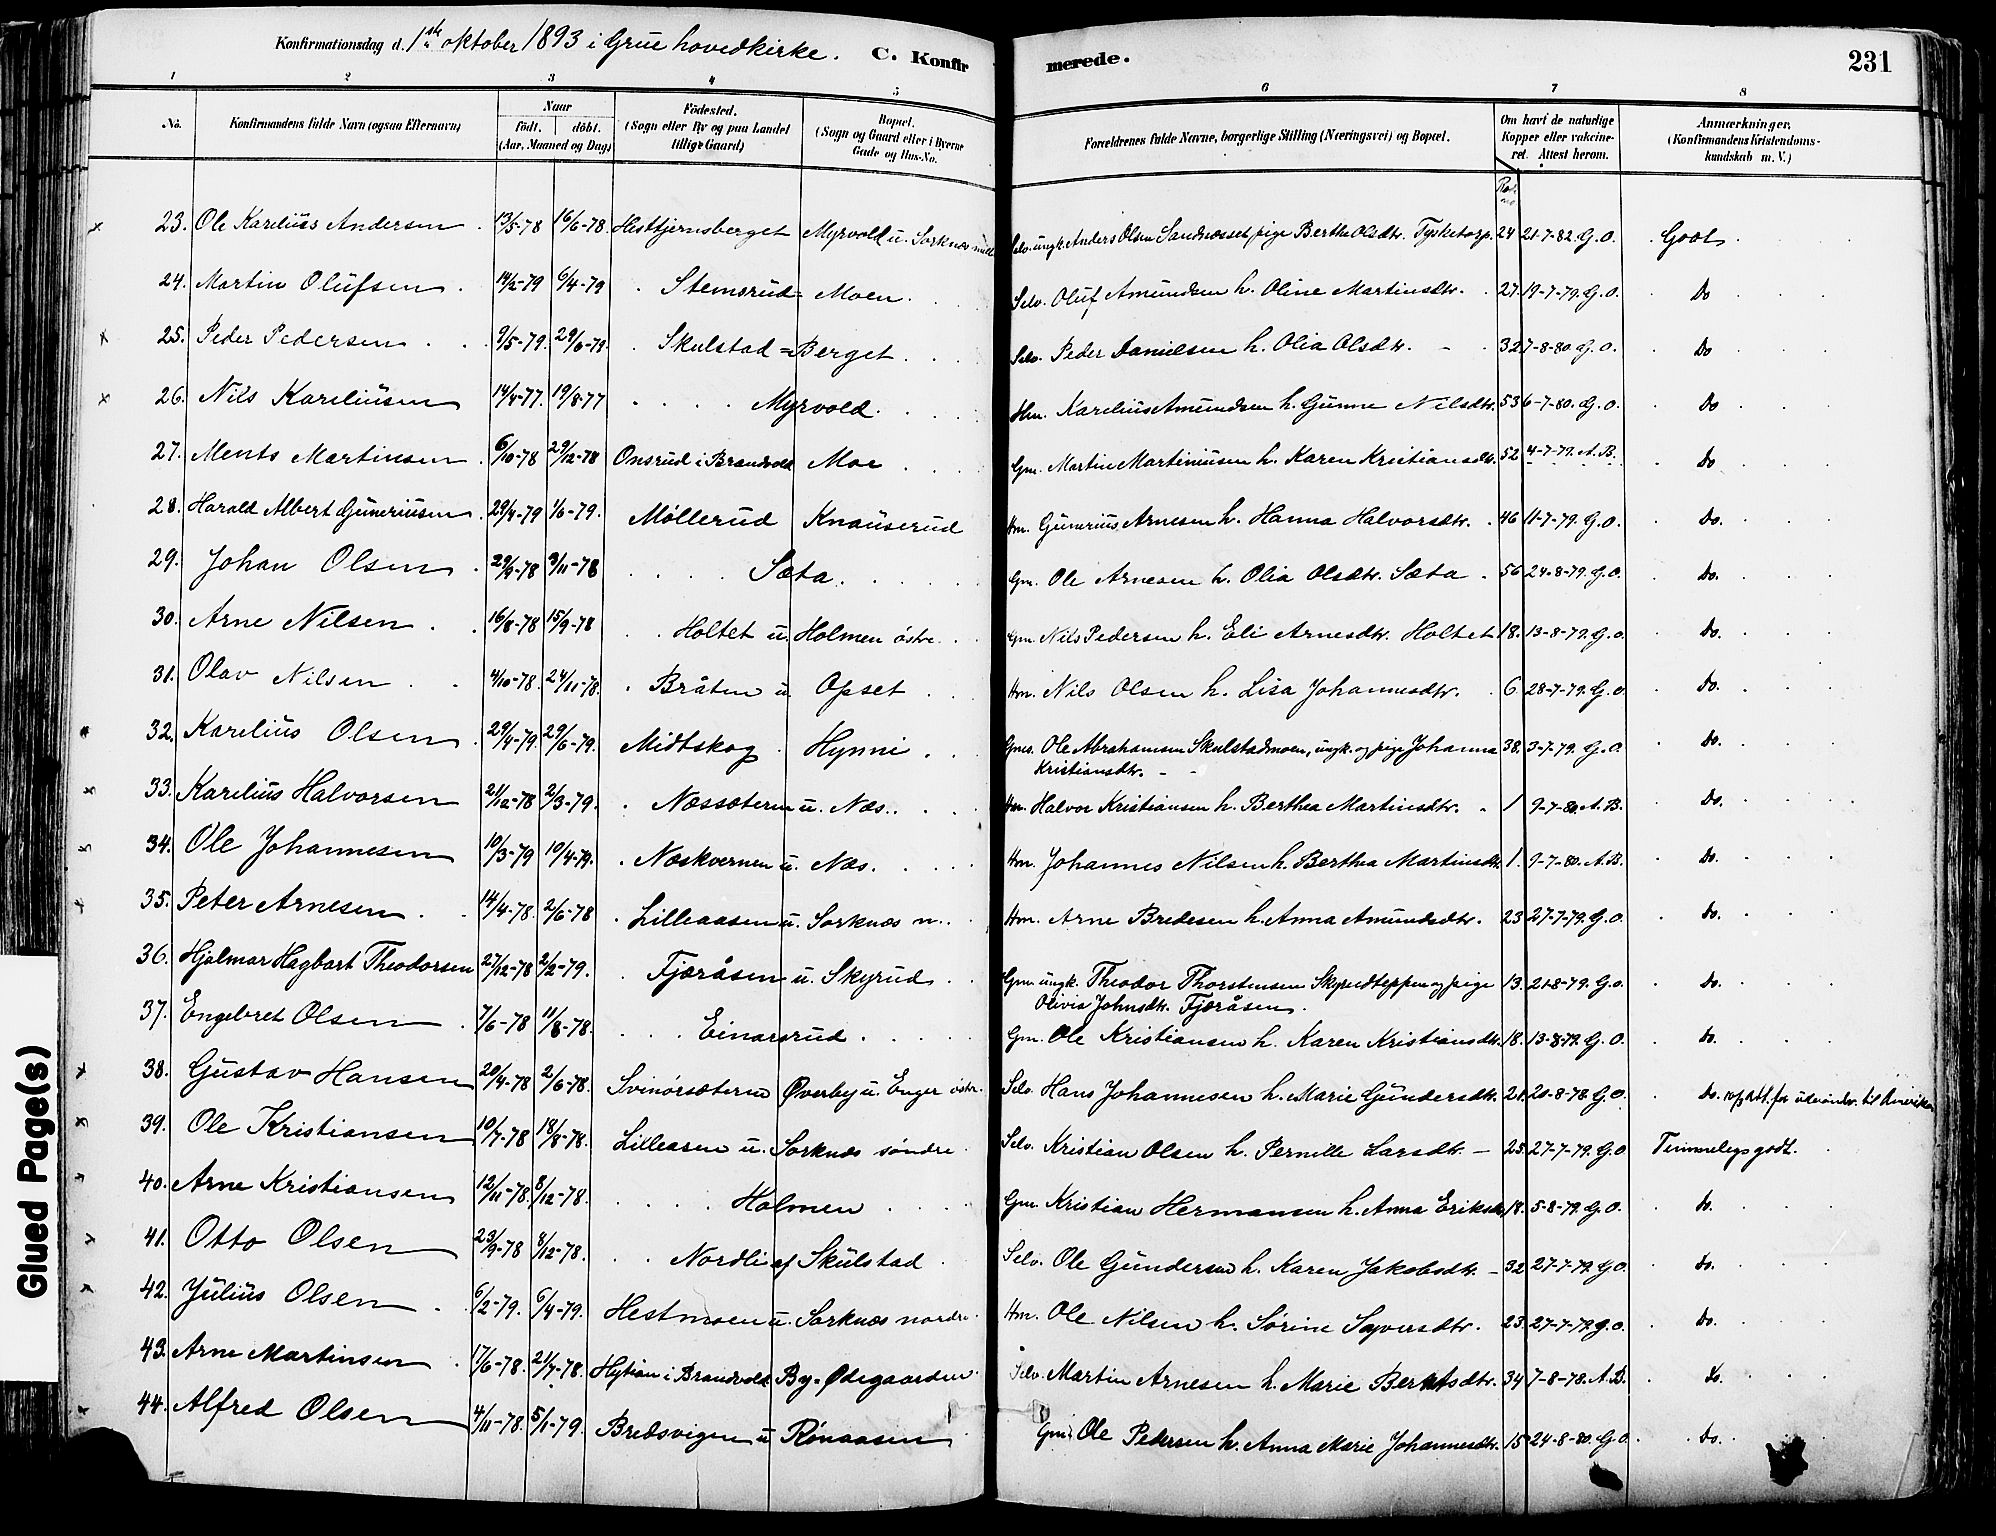 Konfirmationsdag d. 1ste oktober 1893 i Grue hovedkirke. C. Konfirmerede. 231
1 2 3 4 5 6 7 8
No. Konfirmandens fulde Navn (ogsaa Efternavn) Naar født. døbt. (Aar, Maaned og Dag) Födested. (Sogn eller By og paa Landet tillige Gaard) Bopæl. (Sogn og Gaard eller i Byerne Gade og Hus-No. Forældrenes fulde Navne, borgerlige Stilling (Næringsvei) og Bopæl. Om havt de naturlige Kopper eller vakcineret. Attest herom. Anmærkninger. (Konfirmandens Kristendomskundskab m. V.)
23. Ole Karelius Andersen 13/5-78 16/6-78. Hesttjernsberget Myrvold u. Sorknæs Selv. ungk. Anders Olsen Sandnæsset, pige Berthe Olsdtr. Tysketorp. 24 21-7-82. G.O. Godt
24. Martin Olufsen 14/2-79 6/4-79 Stemsrud= Moen. Selv. Oluf Amundsen h. Oline Martinsdtr. 27. 19-7-79. G.O. Do
25. Peder Pedersen 9/5-79. 29/6-79. Skulstad=Berget. Selv. Peder Danielsen h. Olia Olsdtr. 32 7-8-80 G.O. Do
26. Nils Kareliusen 14/4-77. 19/8-77 Myrvold. Hm. Karelius Amundsen h. Gunne Nilsdtr. 53 6-7-80. G.O. Do
27. Ments Martinsen 6/10-78 29/12-78 Onsrud i Brandvold Moe Gm. Martin Martiniusen h. Karen Kristiansdtr. 52 4-7-79. A.B. Do
28. Harald Albert Guneriusen 29/4-79 1/6-79. Møllerud Knauserud Hm. Gunerius Arnesen h. Hanna Halvorsdtr. 46 11-7-79. G.O. Do.
29. Johan Olsen 29/9-78 3/11-78 Sæta. Gm. Ole Arnesen h. Olia Olsdtr. Sæta 56 24-8-79. G.O. Do.
30. Arne Nilsen 16/8-78 15/9-78 Holtet u. Holmen østre. Gm. Nils Pedersen h. Eli Arnesdtr. Holtet 18. 13-8-79. G.O. Do.
31. Olav Nilsen 4/10-78. 24/11-78. Bråten u. Opset Hm. Nils Olsen h. Lisa Johannesdtr. 6 28-7-79. G.O Do.
32. Karelius Olsen 29/4-79. 29/6-79. Midtskog Hynni. Gms. Ole Abrahamsen Skulstadmoen, ungk. og pige Johanna Kristiansdtr. 38. 3-7-79. G.O. Do.
33. Karelius Halvorsen 21/12-78 2/3-79. Næssæteren u. Næs. Hm. Halvor Kristiansen h. Berthea Martinsdtr. 1 9-7-80. A.B. Do.
34. Ole Johannesen 10/3-79 19/4-79. Næskvernen u. Næs. Hm. Johannes Nilsen h. Berthea Martinsdtr. 1. 9-7-80. A.B. Do.
35. Peter Arnesen 14/4-78. 2/6-78 Lilleaasen u. Sorknæs n. Hm. Arne Bredesen h. Anna Amundsdtr. 23 27-7-79. G.O. Do.
36. Hjalmar Hagbart Theodorsen 27/12-78 2/2-79. Fjæråsen u. Skyrud Gm. ungk. Theodor Thorstensen Skyrudteppen og pige Olivia Johnsdtr. Fjæråsen. 13. 21-8-79. G.O. Do.
37. Engebret Olsen 7/6-78 11/8-78. Einarsrud. Gm. Ole Kristiansen h. Karen Kristiansdtr. 18. 13-8-79. G.O. Do.
38. Gustav Hansen 20/4-78 2/6-78. Svinörsæteren Øverby u. Enger østre. Selv. Hans Johannesen h. Marie Gundersdtr. 21. 20-8-78 G.O. Do. Att. for udvandr. til Amerika
39. Ole Kristiansen 10/7-78 18/8-78. Lilleasen u. Sorknæs søndre. Selv. Kristian Olsen h. Pernille Larsdtr. 25. 27-7-79. G.O Temmelig godt.
40. Arne Kristiansen 12/11-78. 8/12-78. Holmen Gm. Kristian Hermansen h. Anna Eriksdtr. 18. 5-8-79. G.O. do.
41. Otto Olsen 23/9-78 8/12-78. Nordli af Skulstad Selv. Ole Gundersen h. Karen Jakobsdtr. 32 27-7-79. G.O. do.
42. Julius Olsen 6/2-79. 6/4-79. Hestmoen u. Sorknæs nordre. Hm. Ole Nilsen h. Sørine Syversdtr. 23. 27-7-79. G.O. Do.
43. Arne Martinsen 17/6-78. 21/7-78. Hytian i Brandvold By-Ødegaarden Selv. Martin Arnesen h. Marie Berntsdtr. 34 7-8-78. A.B. do.
44. Alfred Olsen 4/11-78. 5/1-79. Bredsvigen u Rønaasen Gm. Ole Pedersen h. Anna Marie Johannesdtr. 15 24-8-80. G.O. Do.
Glued Page(s)